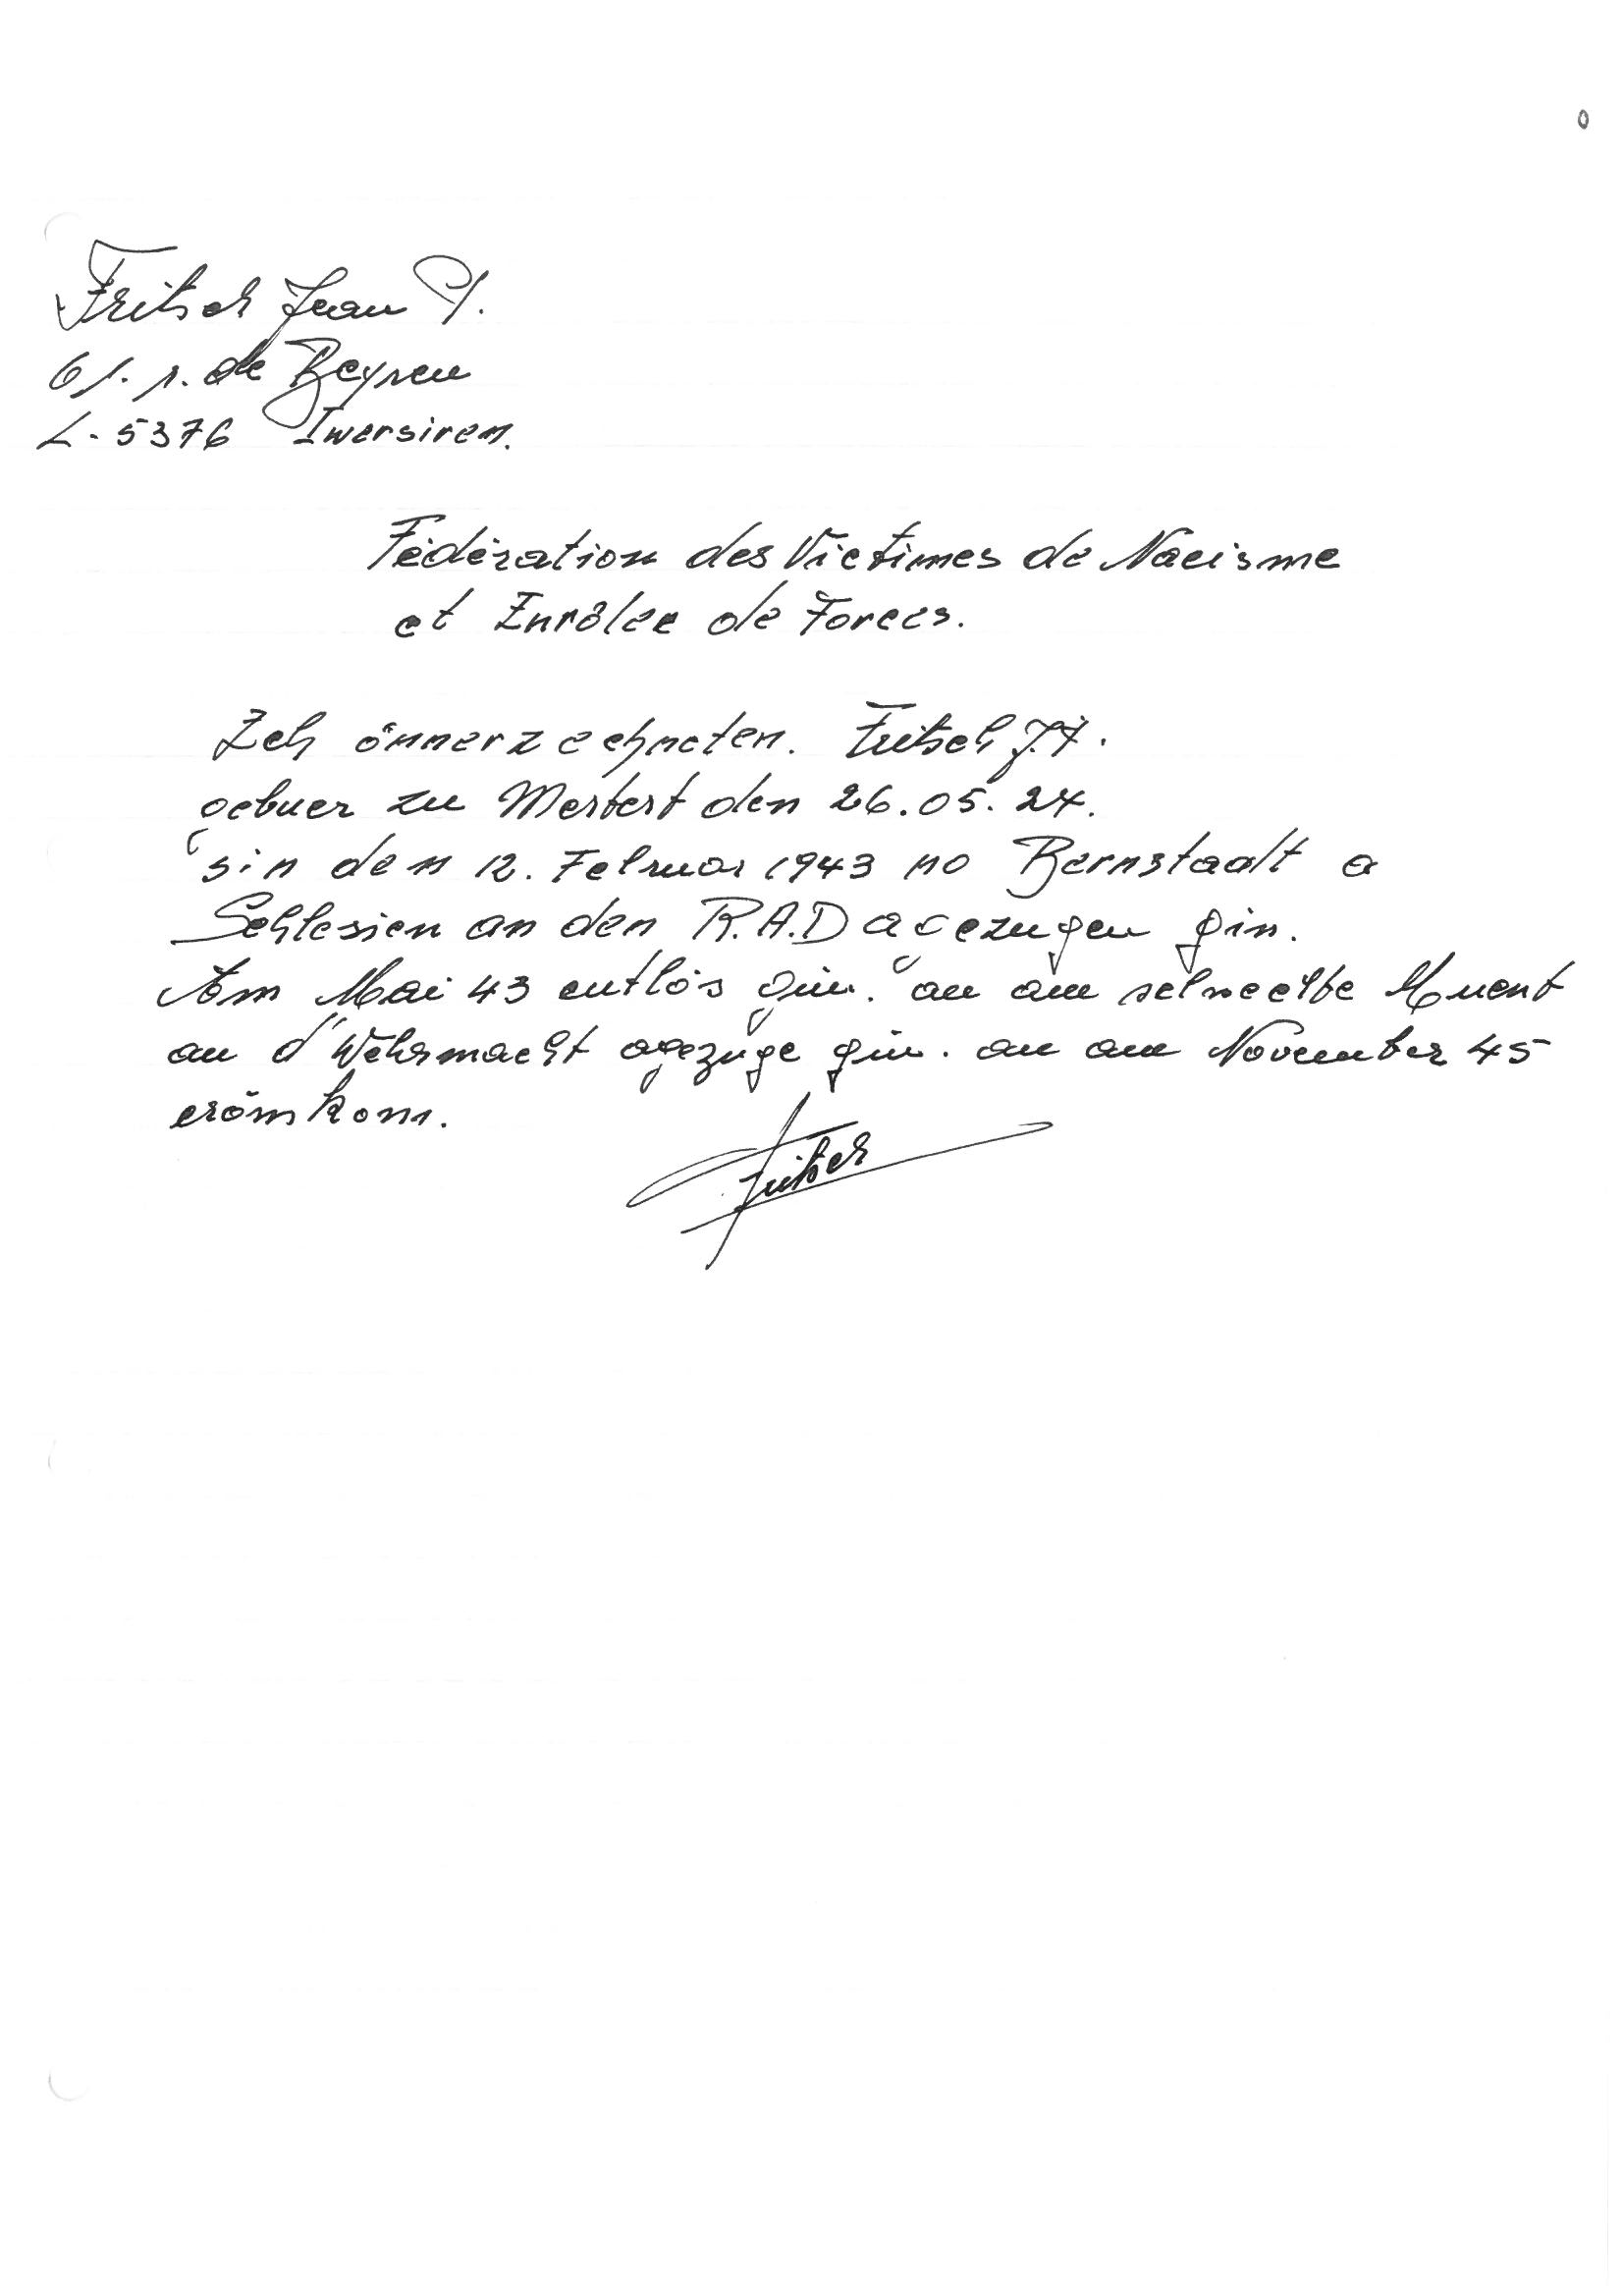 Fritsch Jean P.
61. r. de Beyren
L-5376 Iwersiren.
Fédération des Victimes de Nacisme
et Enrôlee de Forces.
Ech önnerzechneten. Fritsch J.P.
gebuer zu Mertert den 26.05.24.
sin den 12. Februar 1943 no Bernstadt a
Schlesien an den R.A.D agezugen gin.
Am Mai 43 entlós gin. an am selwechte Muent
an d'Wehrmacht agezuge gin. an am November 45
erömkom.
Fritsch